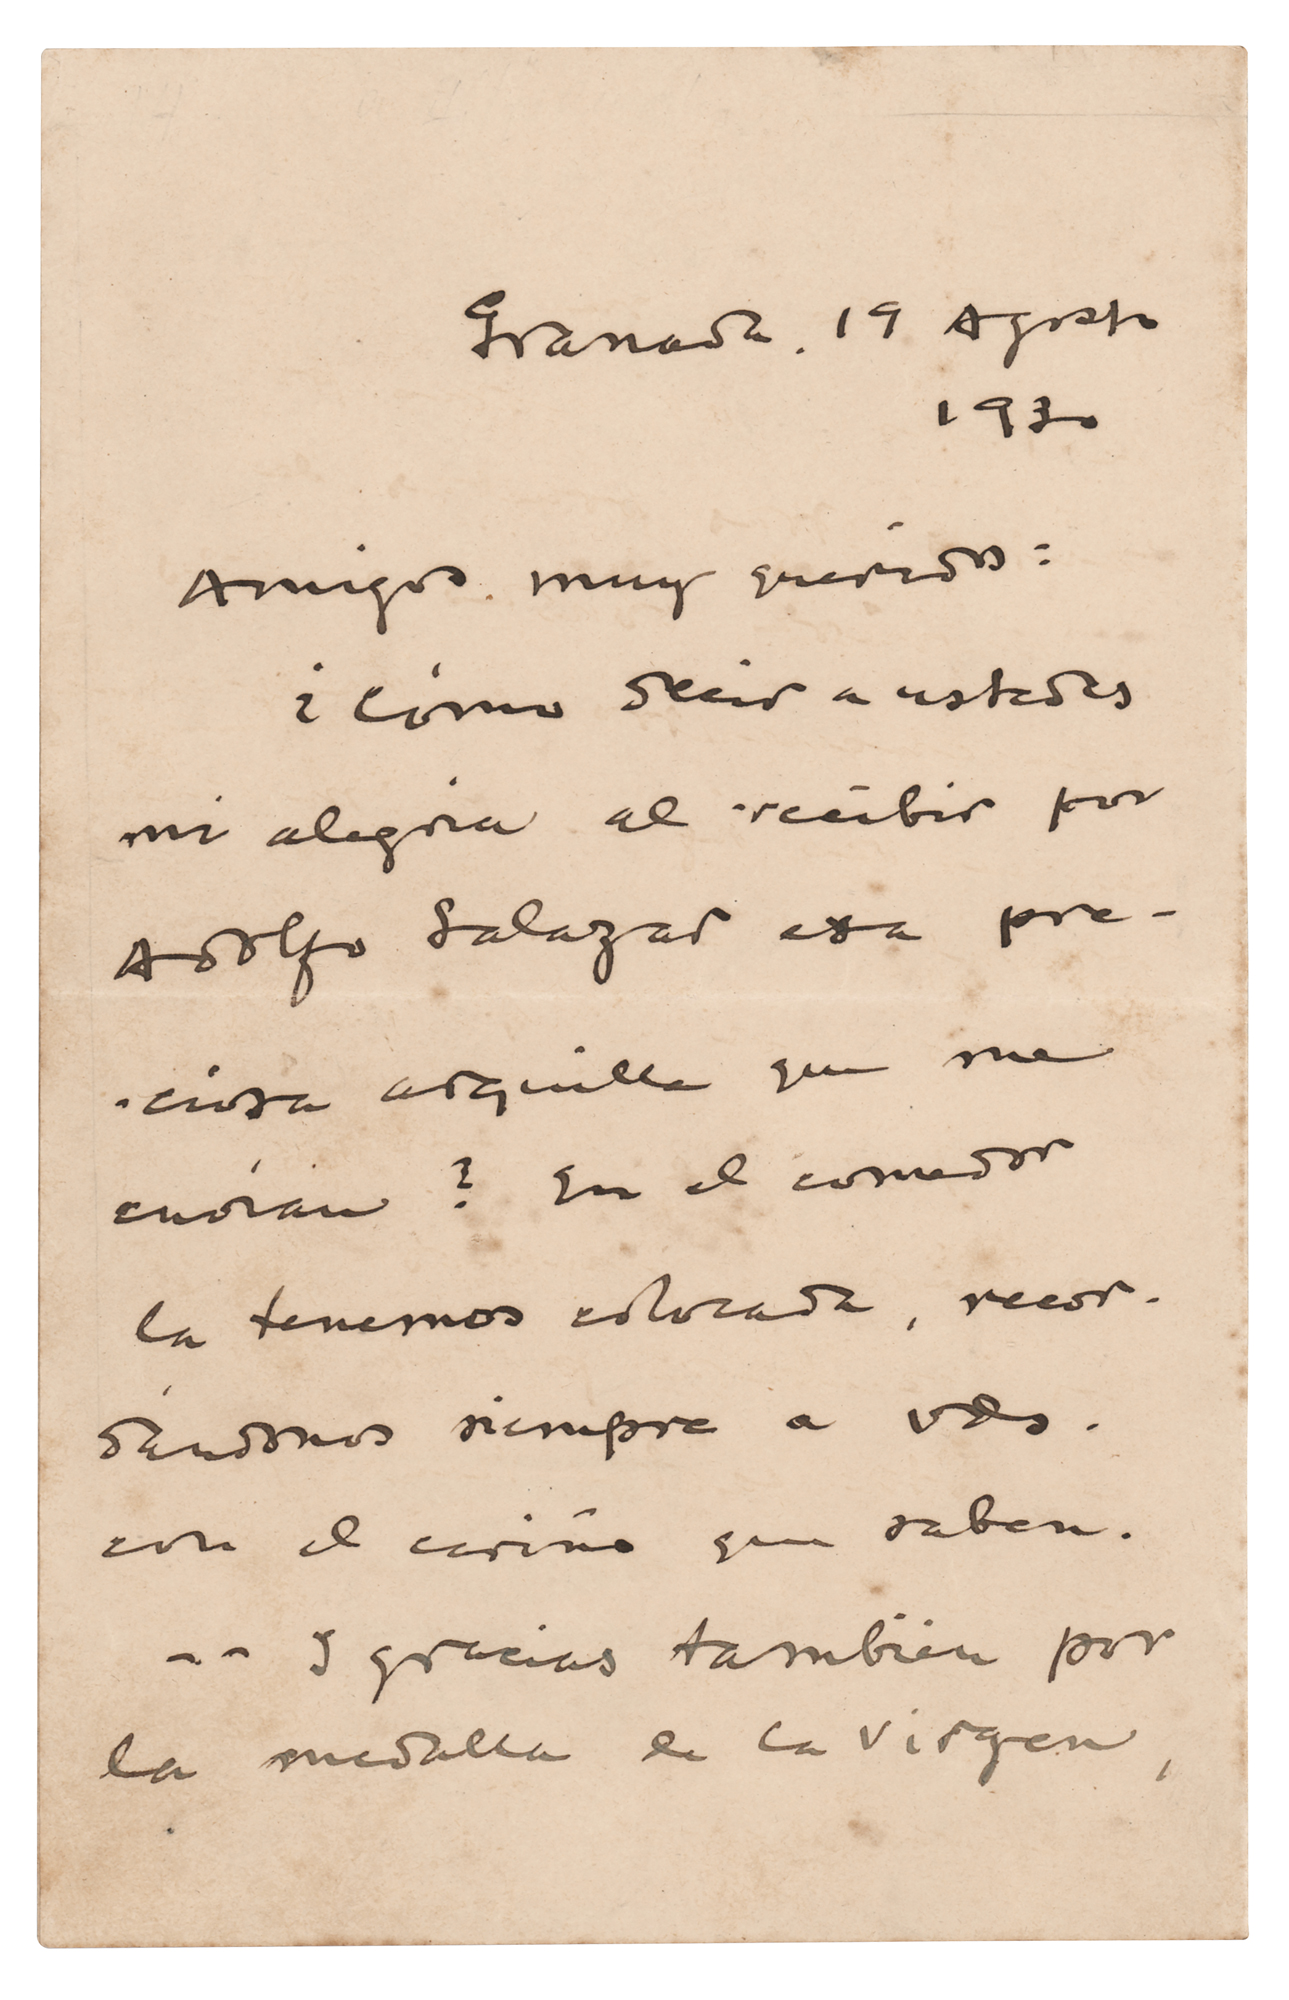 Granada. 19 Agosto
1930
Amigos muy queridos:
¿Cómo decir a ustedes
mi alegria al recibir por
Adolfo Salazar esa pre-
-ciosa arquilla que me
envían? En el comedor
la tenemos colocada, recor-
dándonos siempre a Vds.
con el cariño que saben.
-- Y gracias también por
la medalla de la Virgen,